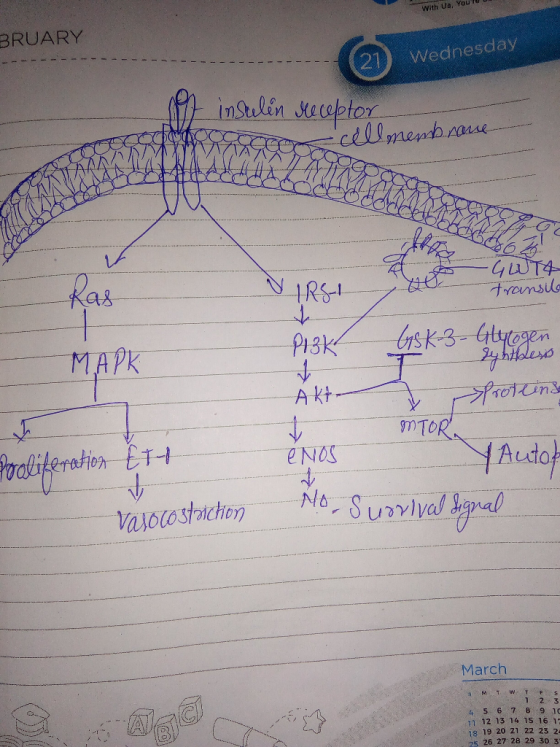 With Us, You're
BRUARY
21 Wednesday
insulin receptor
cell membrane
GLUT4
Ras
IRS-1
MAPK
PI3K
GSK-3 - Glycogen
Synthesis
Akt
mTOR
Proliferation ET-1
eNOS
Vasocostriction
No - Survival Signal
March
S M T W T F S
1 2 3
4 5 6 7 8 9 10
11 12 13 14 15 16 17
18 19 20 21 22 23
25 26 27 28 29 30
A B C